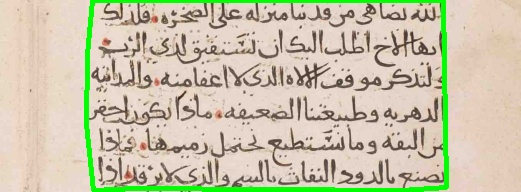 لانه يضاهي من قدبنا منزله علي الصخره. فلذلك
ايها الاخ اطلب اليك ان نستفيق لدي الرب
ولنذكر موقف الاه الذي لا اعفا منه. والمداينه
الدهريه وطبيعتنا الضعيفه. ماذا تكون احقر
من البقه وما نستطيع نحتمل زميمها. فماذا
نصنع بالدود النفاث بالسم والذي لا يرقد. اذا